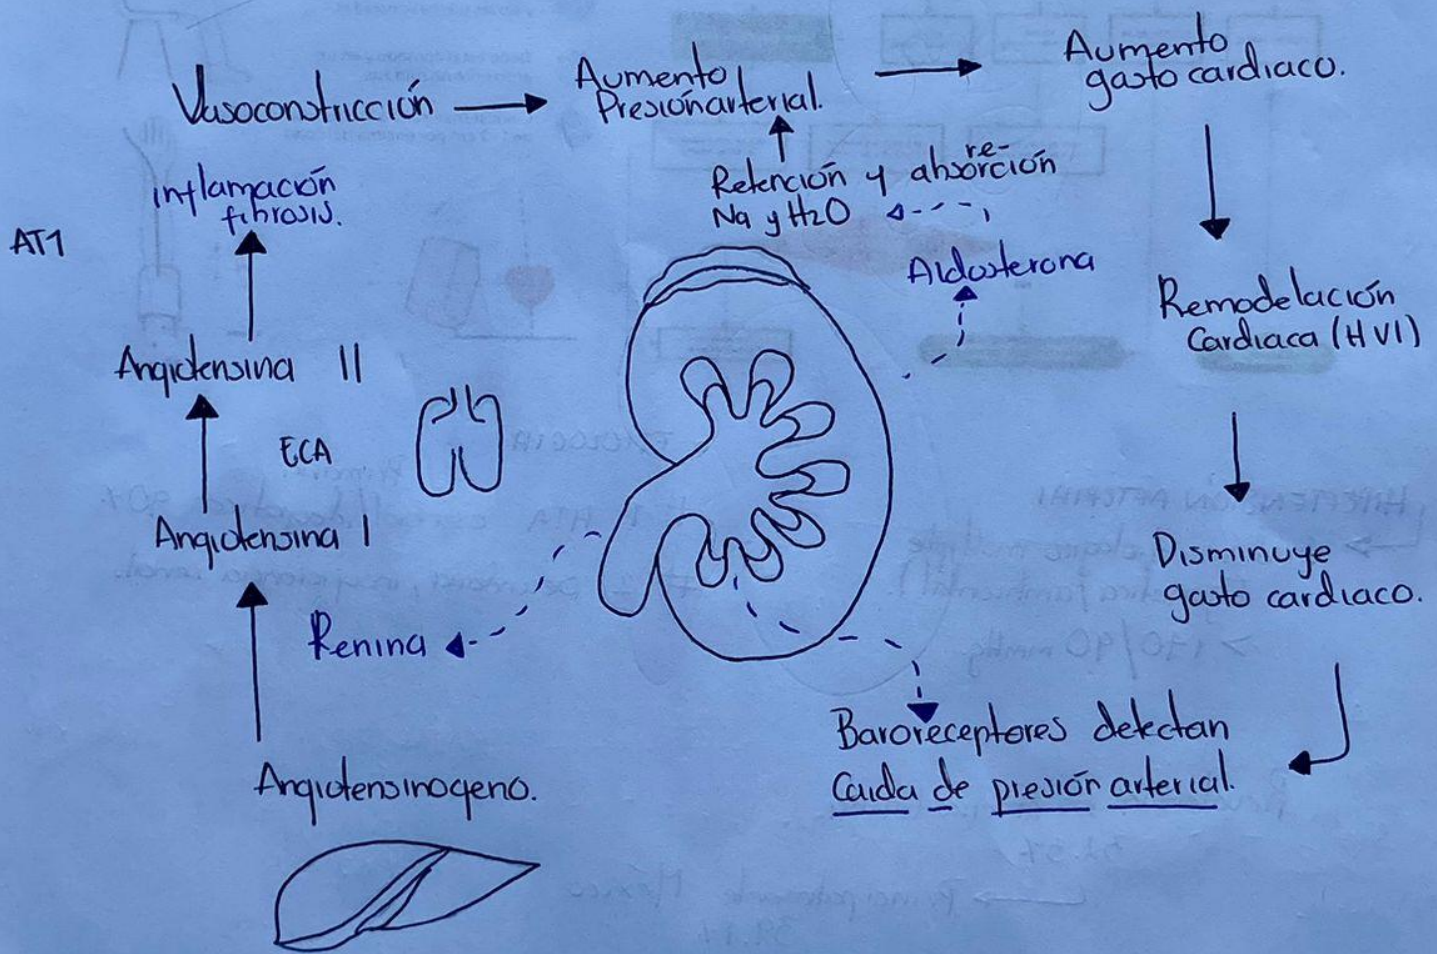 Vasoconstricción
Aumento
Presión arterial.
Aumento
gasto cardiaco.
inflamación
fibrosis.
AT1
Retención y absorción
re-
Na y H2O
Aldosterona
Remodelación
Cardiaca (HVI)
Angiotensina II
ECA
Angiotensina I
Disminuye
gasto cardiaco.
Renina
Baroreceptores detectan
Caida de presión arterial.
Angiotensinogeno.
HIPERTENSIÓN ARTERIAL
> 130/90 mmHg
Principalmente México